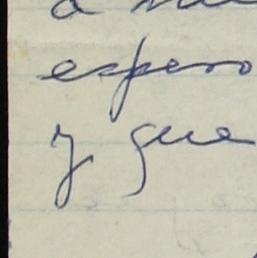 a
espero
y que